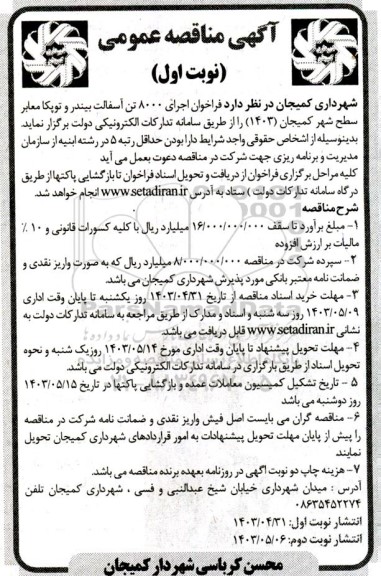 آگهی مناقصه عمومی
(نوبت اول)
شهرداری کمیجان در نظر دارد فراخوان اجرای ۸۰۰۰ تن آسفالت بیندر و توپکا معابر
سطح شهر کمیجان (۱۴۰۳) را از طریق سامانه تدارکات الکترونیکی دولت برگزار نماید.
بدینوسیله از اشخاص حقوقی واجد شرایط دارا بودن حداقل رتبه ۵ در رشته ابنیه از سازمان
مدیریت و برنامه ریزی جهت شرکت در مناقصه دعوت بعمل می آید
کلیه مراحل برگزاری فراخوان از دریافت و تحویل اسناد فراخوان تا بازگشایی پاکتها از طریق
درگاه سامانه تدارکات دولت ( ستاد به آدرس www.setadiran.ir انجام خواهد شد.
شرح مناقصه
۱- مبلغ برآورد تا سقف ۱۶/۰۰۰/۰۰۰/۰۰۰ میلیارد ریال با کلیه کسورات قانونی و ۱۰ ٪
مالیات بر ارزش افزوده
۲- سپرده شرکت در مناقصه ۸/۰۰۰/۰۰۰/۰۰۰ میلیارد ریال که به صورت واریز نقدی و
ضمانت نامه معتبر بانکی مورد پذیرش شهرداری کمیجان می باشد.
۳- مهلت خرید اسناد مناقصه از تاریخ ۱۴۰۳/۰۴/۳۱ روز یکشنبه تا پایان وقت اداری
۱۴۰۳/۰۵/۰۹ روز سه شنبه و اسناد و مدارک از طریق مراجعه به سامانه تدارکات دولت به
نشانی www.setadiran.ir قابل دریافت می باشد.
۴- مهلت تحویل پیشنهاد تا پایان وقت اداری مورخ ۱۴۰۳/۰۵/۱۴ روز یک شنبه و نحوه
تحویل اسناد از طریق بارگزاری در سامانه تدارکات الکترونیکی دولت می باشد.
۵ - تاریخ تشکیل کمیسیون معاملات عمده و بازگشایی پاکتها در تاریخ ۱۴۰۳/۰۵/۱۵
روز دوشنبه می باشد
۶- مناقصه گران می بایست اصل فیش واریز نقدی و ضمانت نامه شرکت در مناقصه
را پیش از پایان مهلت تحویل پیشنهادات به امور قراردادهای شهرداری کمیجان تحویل
نمایند
۷- هزینه چاپ دو نوبت آگهی در روزنامه بعهده برنده مناقصه می باشد.
آدرس : میدان شهرداری خیابان شیخ عبدالنبی و فسی . شهرداری کمیجان تلفن
۰۸۶۳۵۴۵۲۲۷۴
انتشار نوبت اول: ۱۴۰۳/۰۴/۳۱
انتشار نوبت دوم: ۱۴۰۳/۰۵/۰۶
محسن کرباسی شهردار کمیجان